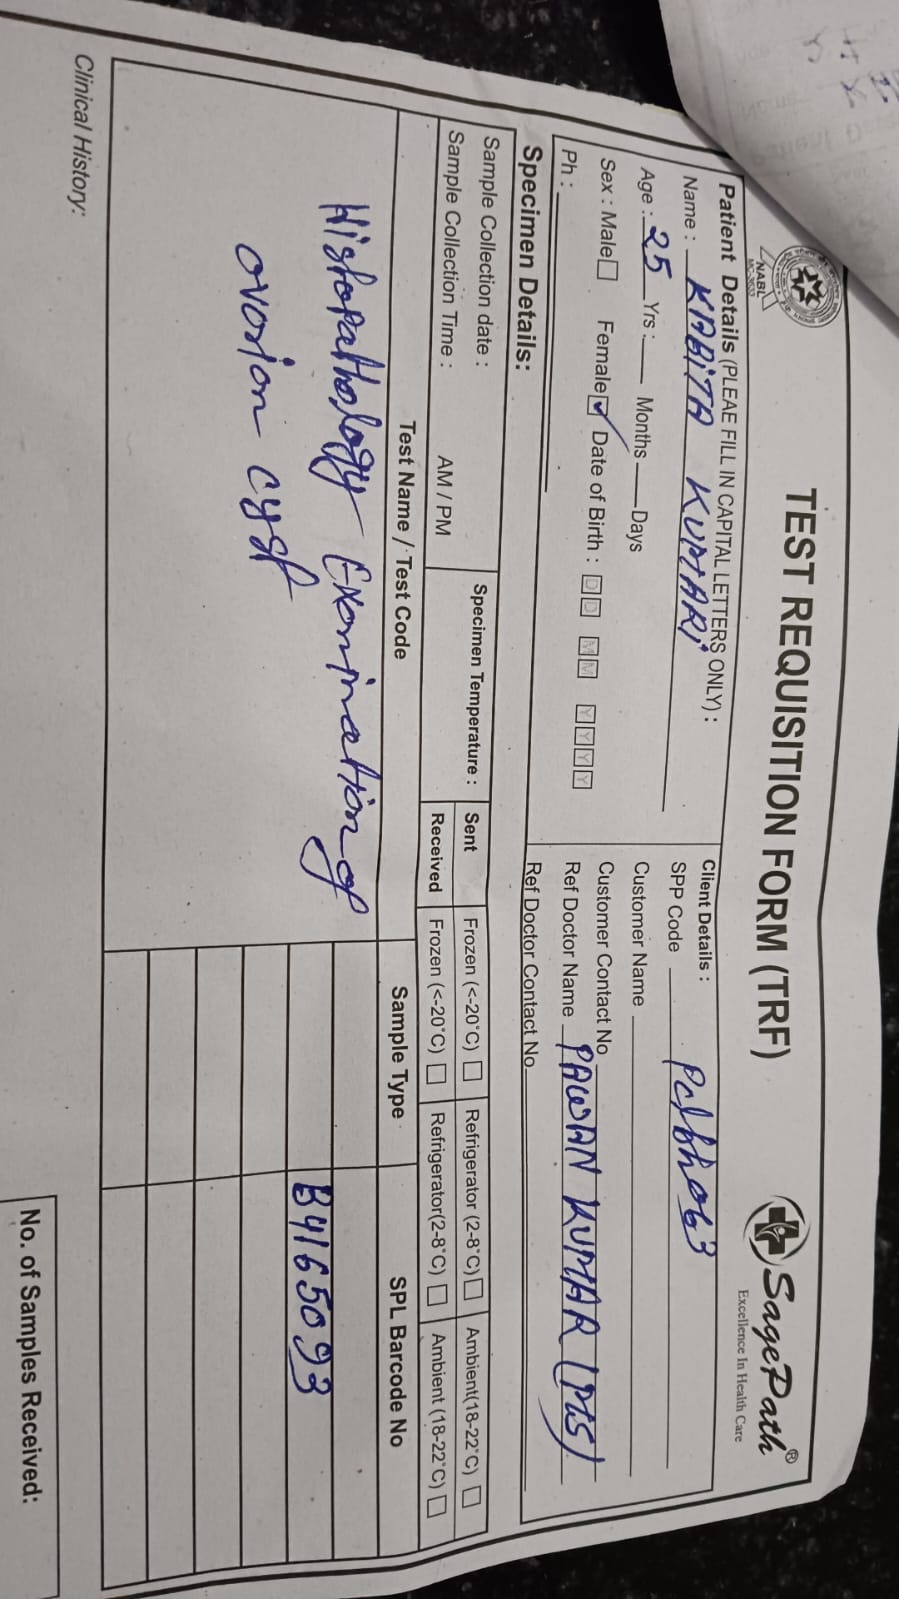 TEST REQUISITION FORM (TRF)
NABL
MC-3633
SagePath®
Excellence In Health Care
Patient Details (PLEAE FILL IN CAPITAL LETTERS ONLY) :
Name : KABITA KUMARI
Age : 25 Yrs : Months Days
Sex : Male Female Date of Birth : D D M M Y Y Y Y
Ph :
Client Details :
SPP Code Patbh063
Customer Name
Customer Contact No
Ref Doctor Name PAWAN KUMAR (PTS)
Ref Doctor Contact No.
Specimen Details:
Sample Collection date :
Sample Collection Time : AM / PM
Specimen Temperature :
Sent Frozen (<-20°C) Refrigerator (2-8°C) Ambient(18-22°C)
Received Frozen (<-20°C) Refrigerator(2-8°C) Ambient (18-22°C)
Test Name / Test Code Sample Type SPL Barcode No
Histopathology Examination of
ovarion cyst
B4165093
Clinical History:
No. of Samples Received: